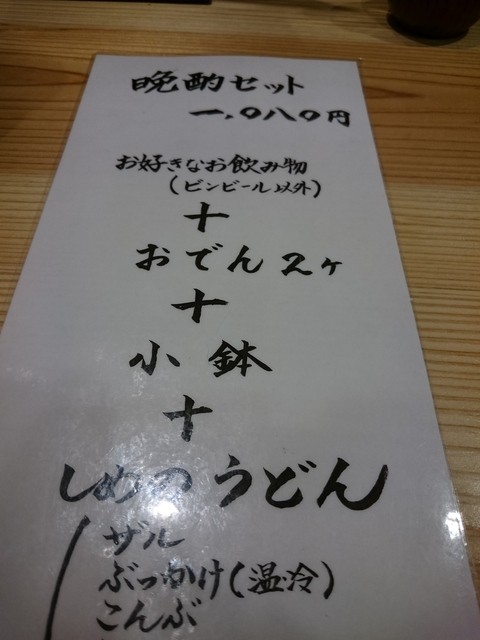 晩酌セット
一,〇八〇円
お好きなお飲み物
(ビンビール以外)
+
おでん2ヶ
+
小鉢
+
しめのうどん
ザル
ぶっかけ(温冷)
こんぶ